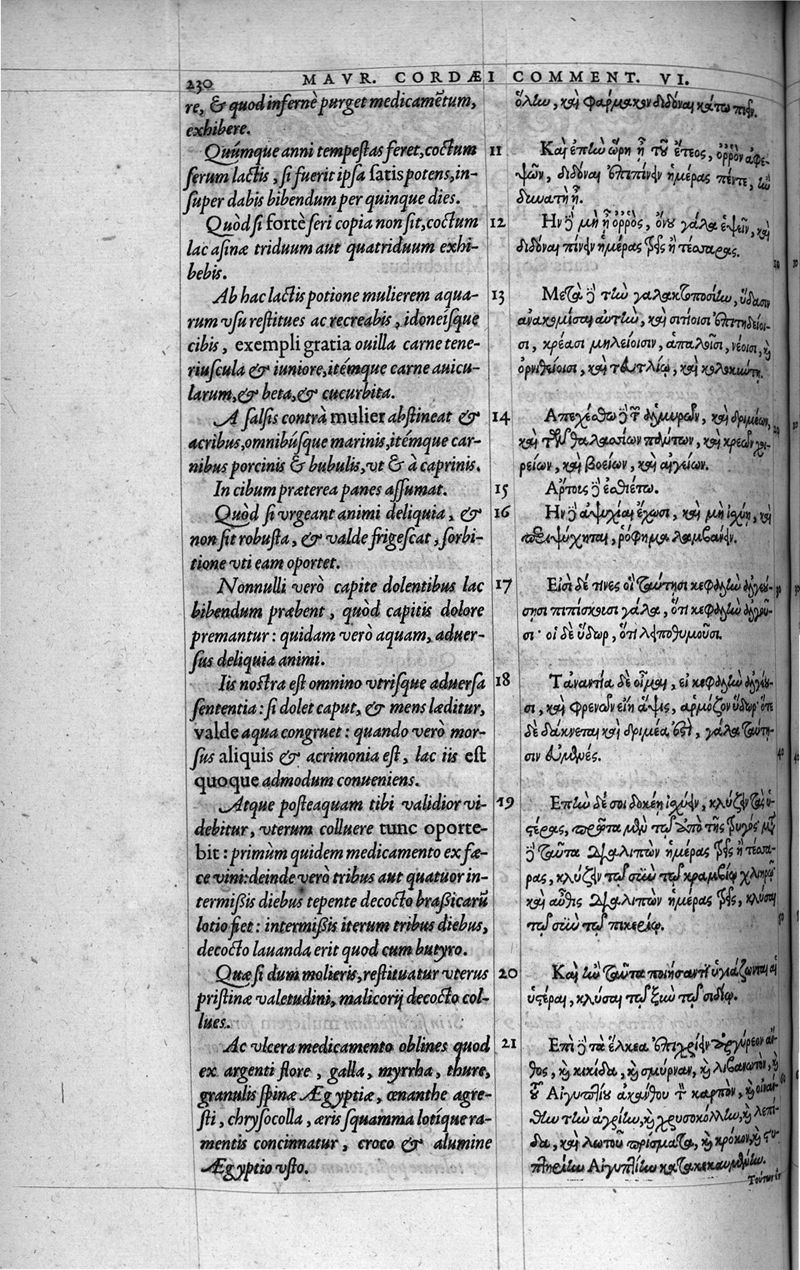 230 MAVR. CORDÆI COMMENT. VI.
re, & quod infernè purget medicamẽtum,
exhibere.
Quúmque anni tempestas feret, coctum
serum lactis, si fuerit ipsa satis potens, in-
super dabis bibendum per quinque dies.
Quòd si fortè seri copia non sit, coctum
lac asinæ triduum aut quatriduum exhi-
bebis.
Ab hac lactis potione mulierem aqua-
rum vsu restitues ac recreabis, idoneísque
cibis, exempli gratia ouilla carne tene-
riuscula & iuniore, itémque carne auicu-
larum, & beta, & cucurbita.
A salsis contrà mulier abstineat &
acribus, omnibúsque marinis, itémque car-
nibus porcinis & bubulis, vt & à caprinis.
In cibum præterea panes assumat.
Quòd si vrgeant animi deliquia, &
non sit robusta, & valde frigescat, sorbi-
tione vti eam oportet.
Nonnulli verò capite dolentibus lac
bibendum præbent, quòd capitis dolore
premantur: quidam verò aquam, aduer-
sus deliquia animi.
Iis nostra est omnino vtrisque aduersa
sententia: si dolet caput, & mens læditur,
valde aqua congruet: quando verò mor-
sus aliquis & acrimonia est, lac iis est
quoque admodum conueniens.
Atque posteaquam tibi validior vi-
debitur, vterum colluere tunc oporte-
bit: primùm quidem medicamento ex fæ-
ce vini: deinde verò tribus aut quatuor in-
termißis diebus tepente decocto braßicarũ
lotio fiet: intermißis iterum tribus diebus,
decocto lauanda erit quod cum butyro.
Quæ si dum molieris, restituatur vterus
pristinæ valetudini, malicorij decocto col-
lues.
Ac vlcera medicamento oblines quod
ex argenti flore, galla, myrrha, thure,
granulis spinæ Ægyptiæ, œnanthe agre-
sti, chrysocolla, æris squamma lotíque ra-
mentis concinnatur, croco & alumine
Ægyptio vsto.
ὅλίω, καὶ φάρμακον διδόναι κάτω πιεῖν.
11 Καὶ ἐπίω ὥρη ᾖ τοῦ ἔτεος, ὀρρὸν ἀφε-
ψῶν, διδόναι ἐπιπίνειν ἡμέρας πέντε, ἢν
δυνατὴ ᾖ.
12 Ην δὲ μὴ ᾖ ὀρρὸς, ὄνου γάλα ἑψῶν, καὶ
διδόναι πίνειν ἡμέρας τρεῖς ἢ τέσσαρας.
13 Μετὰ δὲ τὴν γαλακτοποσίην, ὕδασιν
ἀνακομίσαι αὐτὴν, καὶ σιτίοισι ἐπιτηδείοι-
σι, κρέασι μηλείοισιν, ἁπαλοῖσι, νέοισι, καὶ
ὀρνιθείοισι, καὶ τεύτλῳ, καὶ κολοκύντῃ.
14 Απεχέσθω δὲ τῶν ἁλμυρῶν, καὶ δριμέων,
καὶ τῶν θαλασσίων πάντων, καὶ κρεῶν χοι-
ρείων, καὶ βοείων, καὶ αἰγείων.
15 Αρτοις δὲ ἐσθιέτω.
16 Ην δὲ ἀψυχίαι ἔχωσι, καὶ μὴ ἰσχύῃ, καὶ
περιψύχηται, ῥόφημα λαμβάνειν.
17 Εἰσὶ δέ τινες οἳ ταύτῃσι κεφαλὴν ἀλγεού-
σῃσι πιπίσκουσι γάλα, ὅτι κεφαλὴν ἀλγοῦ-
σι· οἱ δὲ ὕδωρ, ὅτι λειποθυμοῦσι.
18 Τἀναντία δὲ οἶμαι, εἰ κεφαλὴν ἀλγέου-
σι, καὶ φρενῶν εἴη ἅψις, ἁρμόζον ὕδωρ· ὅτε
δὲ δάκνεται καὶ δριμέα ἐστὶ, γάλα ταύτῃ-
σιν
19 Επὴν δέ σοι δοκέῃ ἰσχύειν, κλύζειν τὰς ὑ-
στέρας, πρῶτα μὲν τῷ ἀπὸ τῆς τρυγός· μετὰ
δὲ ταῦτα διαλιπὼν ἡμέρας τρεῖς ἢ τέσσα-
ρας, κλύζειν τῷ σὺν τῷ κραμβίῳ χλιηρῷ
καὶ αὖθις διαλιπὼν ἡμέρας τρεῖς, κλύσαι
τῷ σὺν τῷ πικερίῳ.
20 Καὶ ἢν ταῦτα ποιήσαντι ὑγιάζωνται αἱ
ὑστέραι, κλύσαι τῷ ξὺν τῷ σιδίῳ.
21 Επὶ δὲ τὰ ἕλκεα ἐπιχρίειν ἀργύρεον ἄν-
θος, καὶ κικίδα, καὶ σμύρναν, καὶ λιβανωτὸν, καὶ
τοῦ Αἰγυπτίου ἀκάνθου τὸν καρπὸν, καὶ οἰνάν-
θην τὴν ἀγρίην, καὶ χρυσοκόλλην, καὶ λεπί-
δα, καὶ λωτοῦ πρίσματα, καὶ κρόκον, καὶ στυ-
πτηρίην Αἰγυπτίην κατακεκαυμένην.